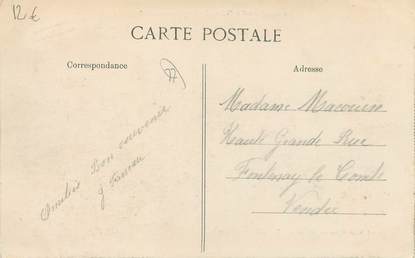 12€
CARTE POSTALE
Correspondance
Adresse
Bon souvenir
Madame
Haute Grande Rue
Fontenay le Comte
Vendée